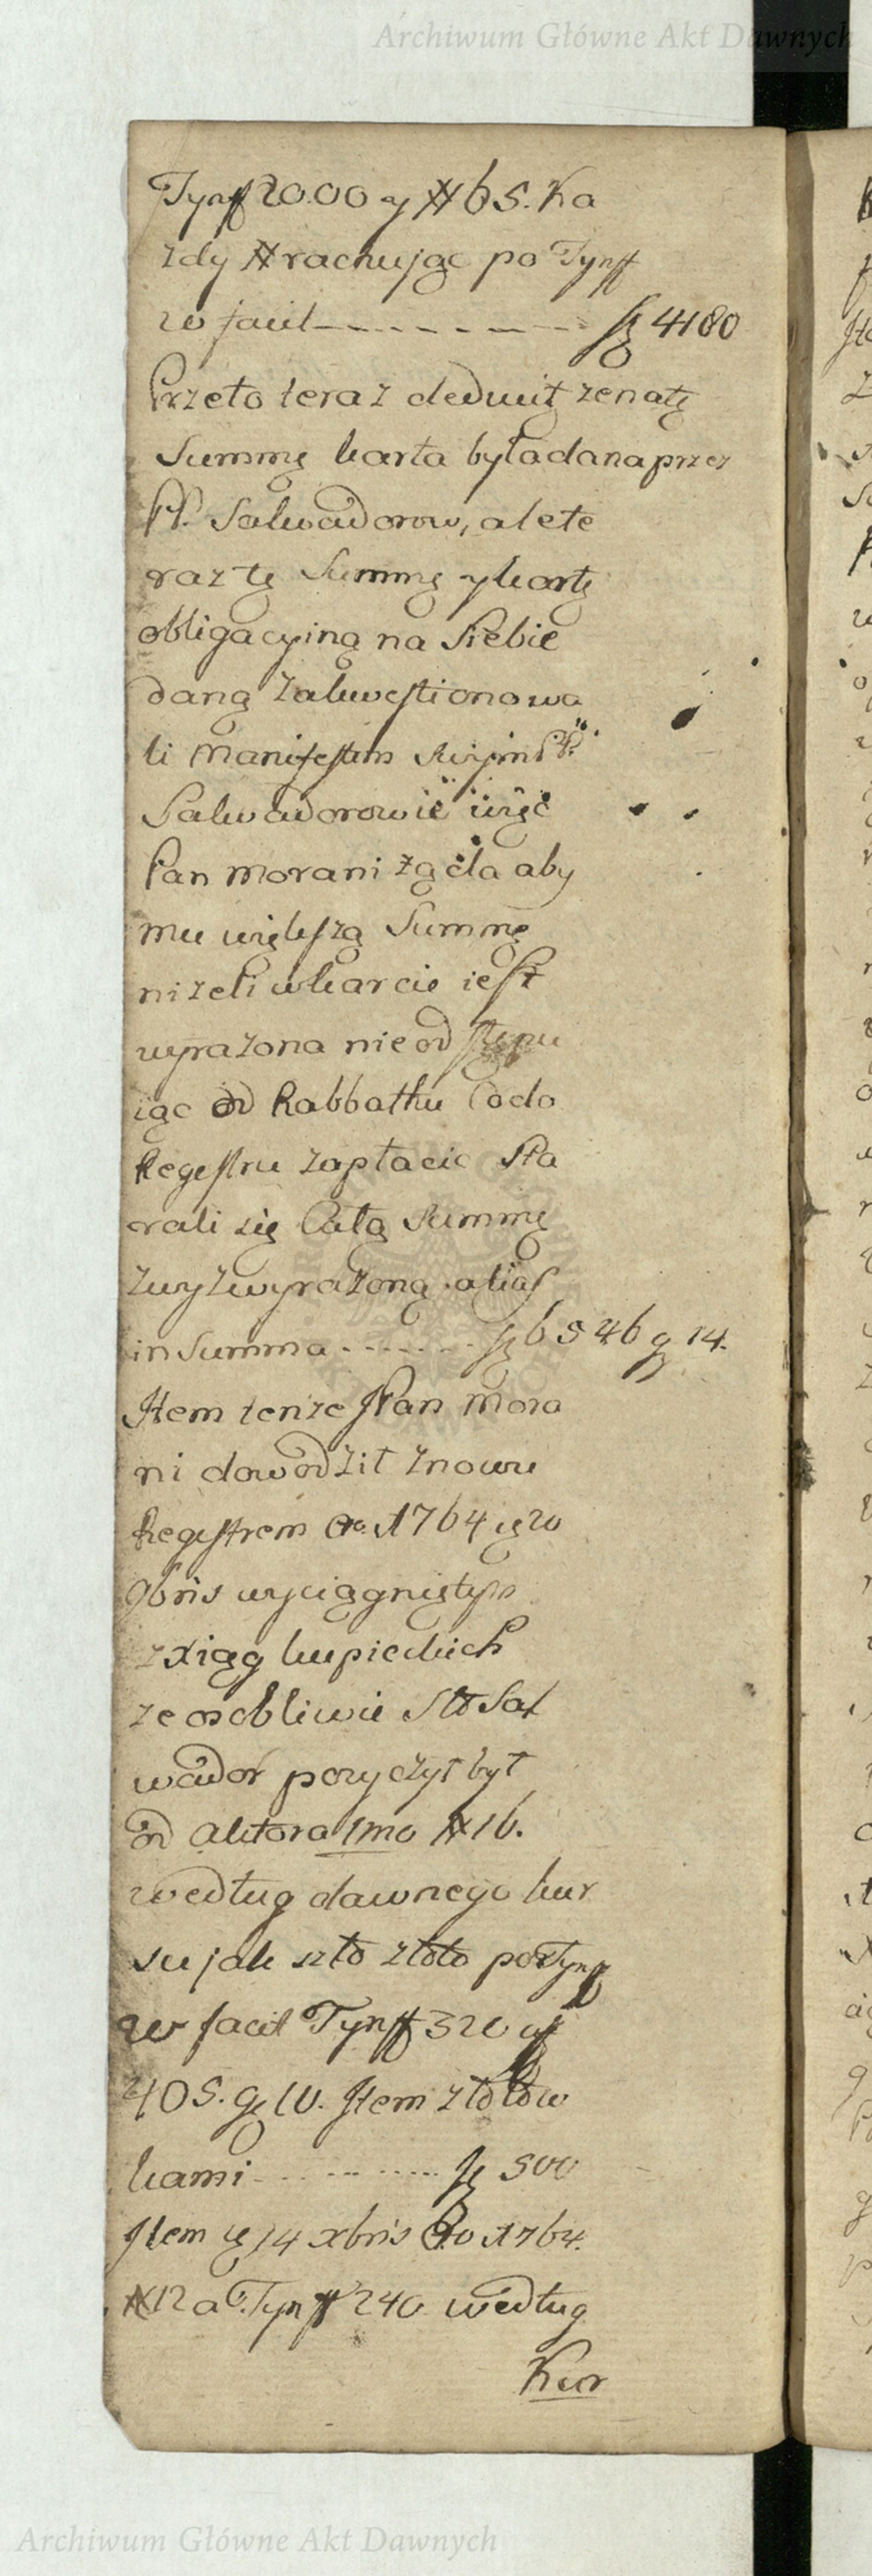 Archiwum Główne Akt Dawnych
Tynff 2000 y # 65. Ka
zdy # rachując po Tynff
20 facit - - - - - - - fl 4180
Przeto teraz dedwit ze na tę
Summę karta była dana przez
PP. Salwadorow, a le te
raz tę Summę y kartę
obligacyiną na Siebie
daną zakwestionowa
li Manifestem swym PP.
Salwadorowie więc
Pan Morani żąda aby
mu większą Summę
niżeli w karcie iest
wyrażona nie odstępu
iąc od Rabbathu Co do
Regestru zapłacic Sta
rali się Całą Summę
zwyż wyrażoną alias
in Summa - - - - - fl 6546 g 14.
Item tenże JPan Mora
ni dowodził znowu
Regestrem Ao 1764 20
9bris wyciągniętym
z Xiąg kupieckich
ze osobliwie Sł Sal
wador pozyczył był
od Aktora 1mo # 16.
według dawnego kur
su jak szło złoto po Tynff
20 facit Tynff 320
405. g 10. Item złotow
kami - - - - - fl 500
Item 14 Xbris Ao 1764.
# 12 a Tynff 240 według
Kur
Archiwum Główne Akt Dawnych